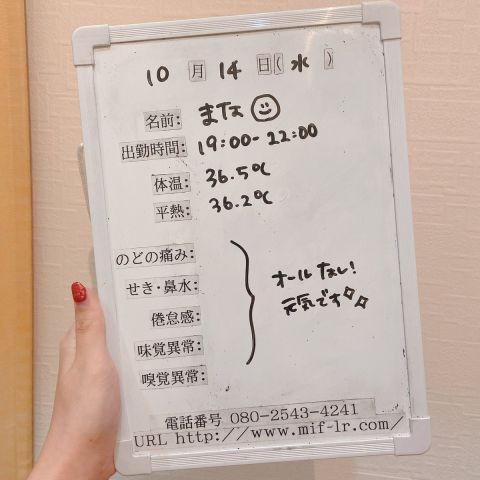 10月14日(水)
名前: まな
出勤時間: 19:00-22:00
体温: 36.5℃
平熱: 36.2℃
のどの痛み:
せき・鼻水:
倦怠感:
味覚異常:
嗅覚異常:
オールなし!
元気です
電話番号 080-2543-4241
URL http://www.mif-lr.com/